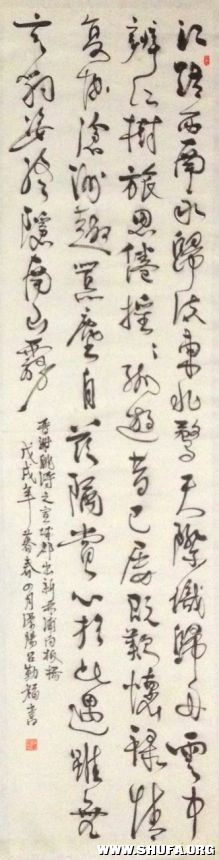 江路西南永歸流東北騖天際識歸舟雲中
辨江樹旅思倦搖〻孤遊昔已屢既歡懷祿情
復協滄洲趣囂塵自茲隔賞心於此遇雖無
玄豹姿終隱南山霧
朓詩之宣城郡出新林浦向板橋
戊戌年暮春月溧陽呂勤福書
WWW.SHUFA.ORG